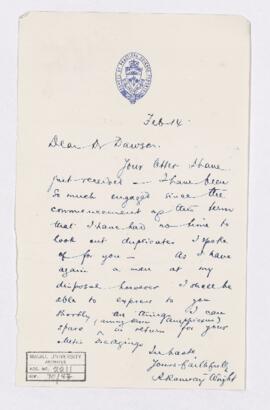 Feb 14
Dear Dr Dawson.
Your letter I have
just received — I have been
so much engaged since the
commencement of this term
that I have had no time to
look out duplicates I spoke
of for you — As I have
again a man at my
disposal however I shall be
able to express to you
shortly any things I can
spare (among them Amphioxus)
in return for your
dredgings
In haste
Yours faithfully
R Ramsay Wright
McGILL UNIVERSITY
ARCHIVES
ACC. NO. 2211
REF.